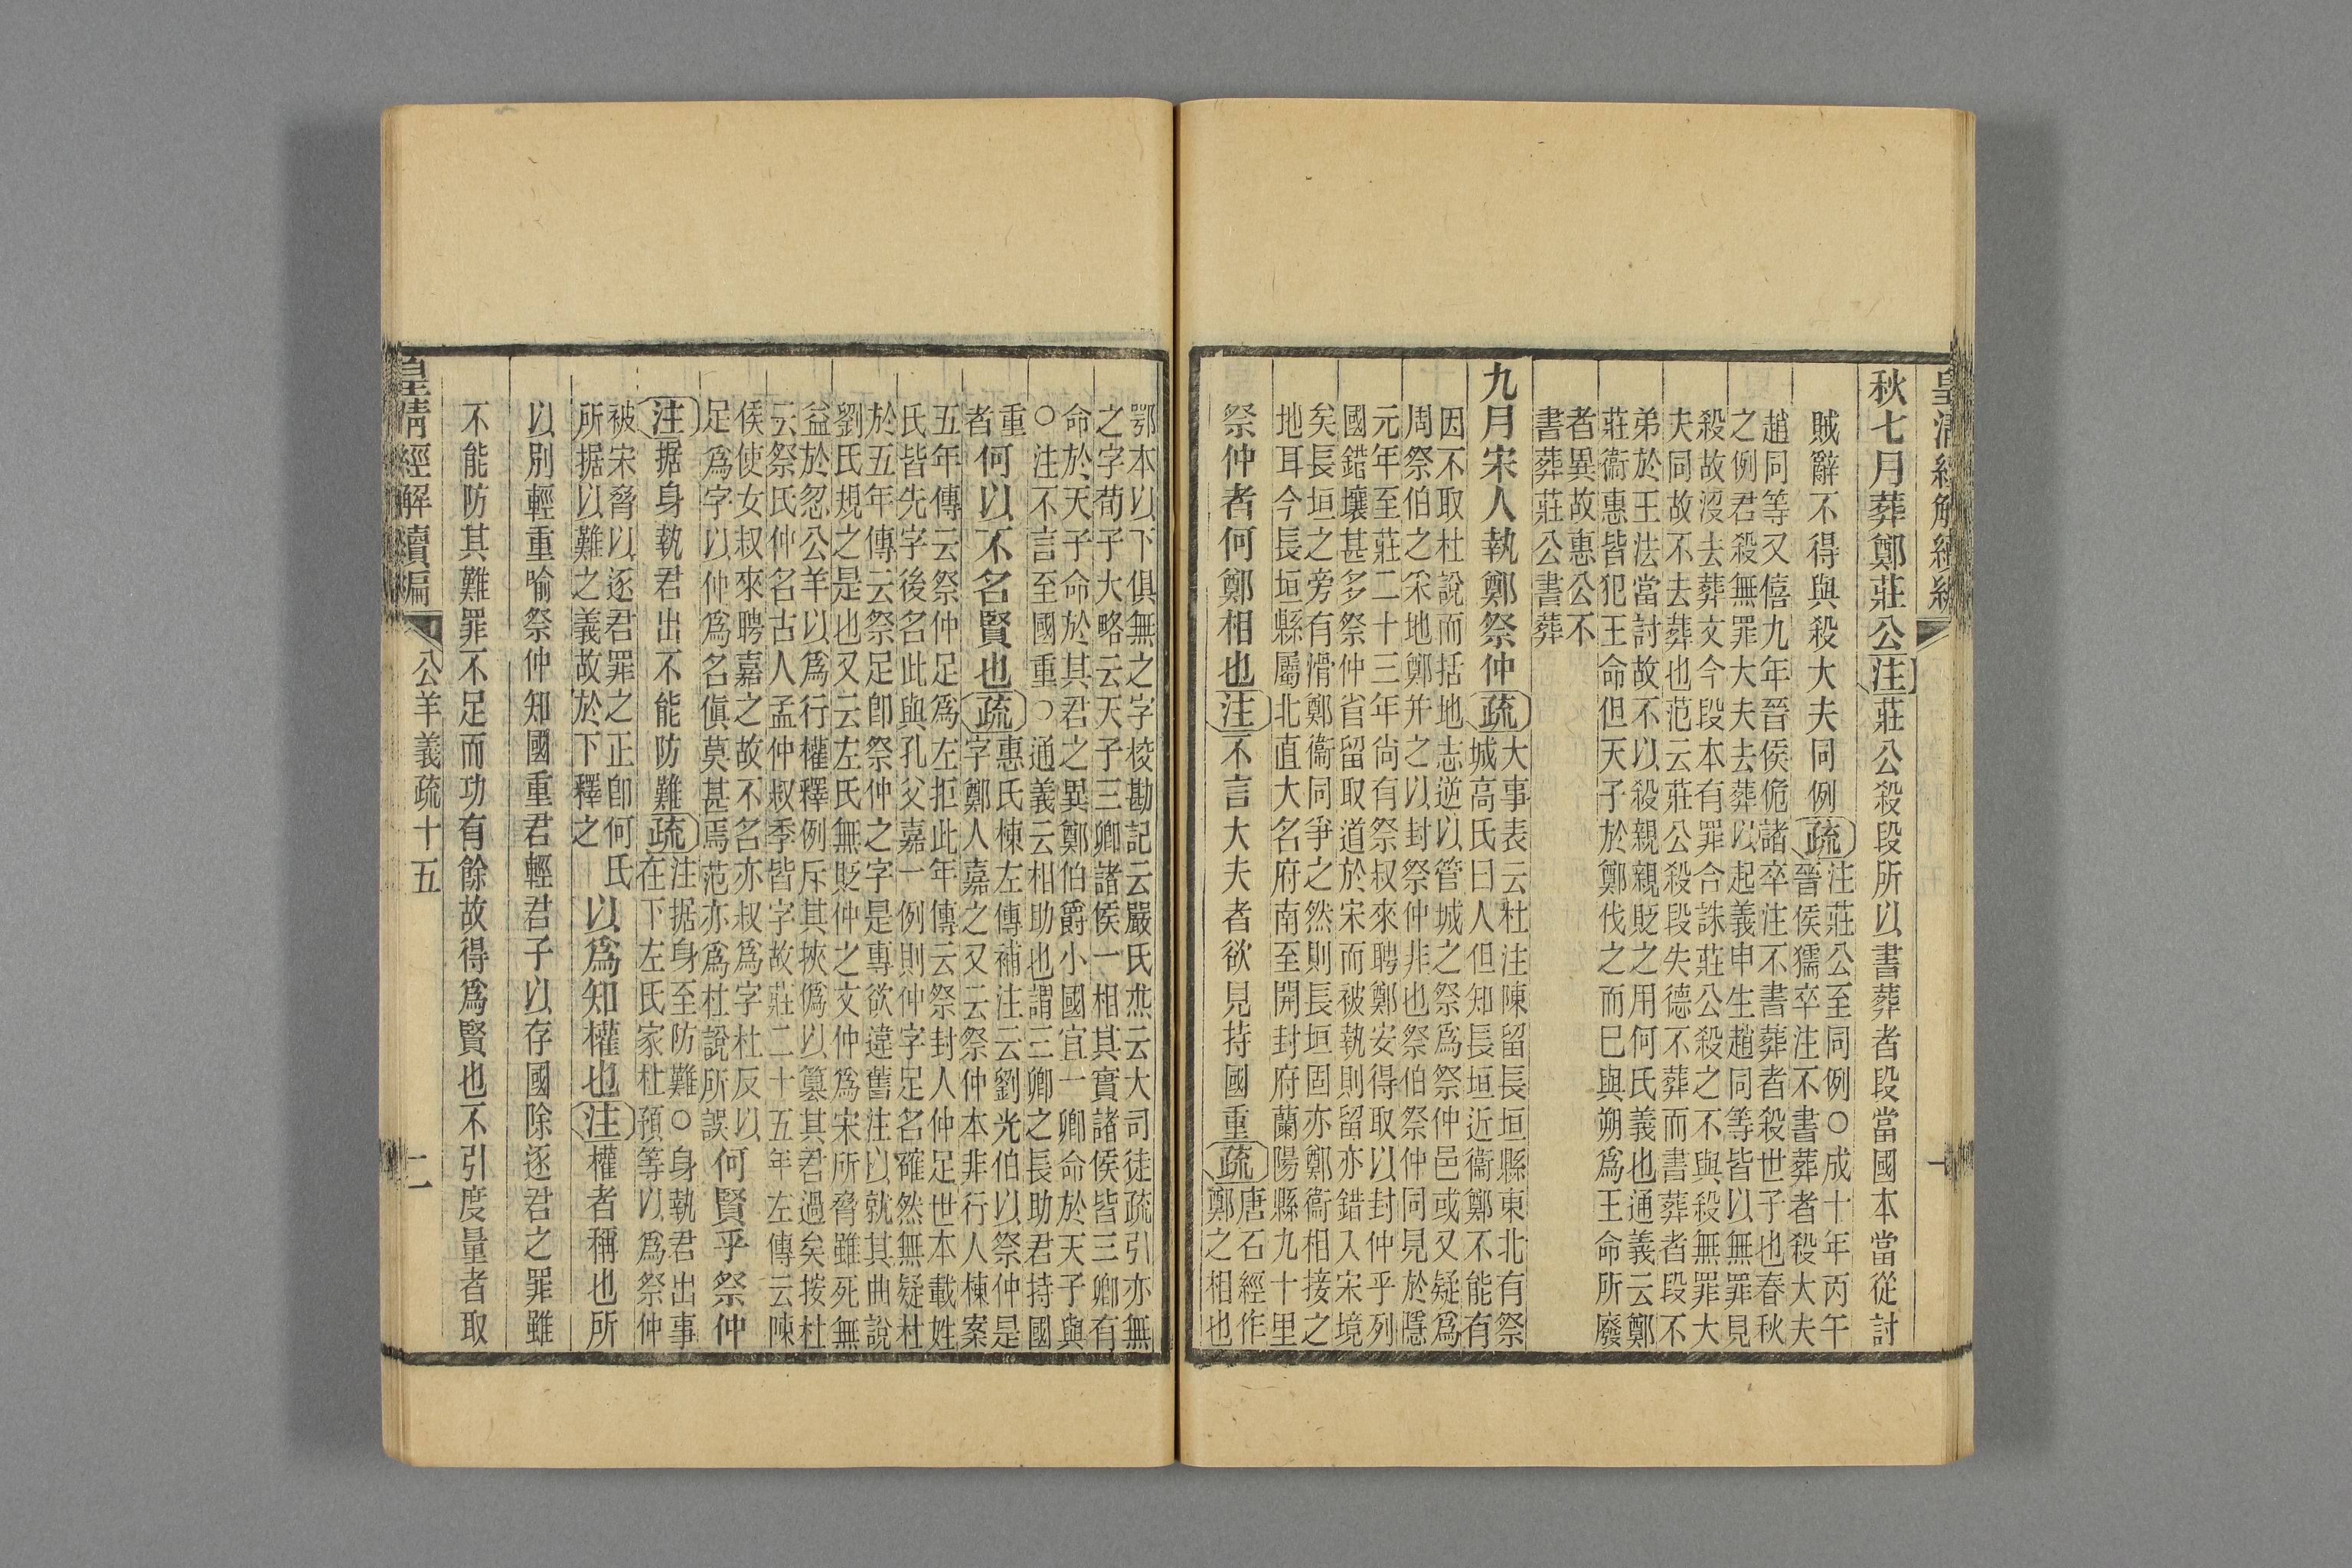 皇清經解續編
秋七月葬鄭莊公注莊公殺段所以書葬者段當國本當從討
賊辭不得與殺大夫同例疏注莊公至同例○成十年丙午
晉侯獳卒注不書葬者殺大夫
趙同等又僖九年晉侯佹諸卒注不書葬者殺世子也春秋
之例君殺無罪大夫去葬以起義申生趙同等皆以無罪見
殺故沒去葬文今段本有罪合誅莊公殺之不與殺無罪大
夫同故不去葬也范云莊公殺段失德不葬而書葬者段不
弟於王法當討故不以殺親親貶之用何氏義也通義云鄭
莊衞惠皆犯王命但天子於鄭伐之而巳與朔爲王命所廢
者異故惠公不
書葬莊公書葬
九月宋人執鄭祭仲疏大事表云杜注陳留長垣縣東北有祭
城高氏曰人但知長垣近衞鄭不能有
因不取杜說而括地志逆以管城之祭爲祭仲邑或又疑爲
周祭伯之采地鄭并之以封祭仲非也祭伯祭仲同見於隱
元年至莊二十三年尙有祭叔來聘鄭安得取以封仲乎列
國錯壤甚多祭仲省留取道於宋而被執則留亦錯入宋境
矣長垣之旁有滑鄭衞同爭之然則長垣固亦鄭衞相接之
地耳今長垣縣屬北直大名府南至開封府蘭陽縣九十里
祭仲者何鄭相也注不言大夫者欲見持國重疏唐石經作
鄭之相也
鄂本以下俱無之字校勘記云嚴氏杰云大司徒疏引亦無
之字荀子大略云天子三卿諸侯一相其實諸侯皆三卿有
命於天子命於其君之異鄭伯爵小國宜一卿命於天子與
○注不言至國重○通義云相助也謂三卿之長助君持國
重
者何以不名賢也疏惠氏棟左傳補注云劉光伯以祭仲是
字鄭人嘉之又云祭仲本非行人棟案
五年傳云祭仲足爲左拒此年傳云祭封人仲足世本載姓
氏皆先字後名此與孔父嘉一例則仲字足名確然無疑杜
於五年傳云祭足卽祭仲之字是專欲違舊注以就其曲說
劉氏規之是也又云左氏無貶仲之文仲爲宋所脅雖死無
益於忽公羊以爲行權釋例斥其挾僞以篡其君過矣按杜
云祭氏仲名古人孟仲叔季皆字故莊二十五年左傳云陳
侯使女叔來聘嘉之故不名亦叔爲字杜反以
足爲字以仲爲名傎莫甚焉范亦爲杜說所誤何賢乎祭仲
注据身執君出不能防難疏注据身至防難○身執君出事
在下左氏家杜預等以爲祭仲
被宋脅以逐君罪之正卽何氏
所据以難之義故於下釋之以爲知權也注權者稱也所
以別輕重喻祭仲知國重君輕君子以存國除逐君之罪雖
不能防其難罪不足而功有餘故得爲賢也不引度量者取
皇清經解續編 公羊義疏十五 二